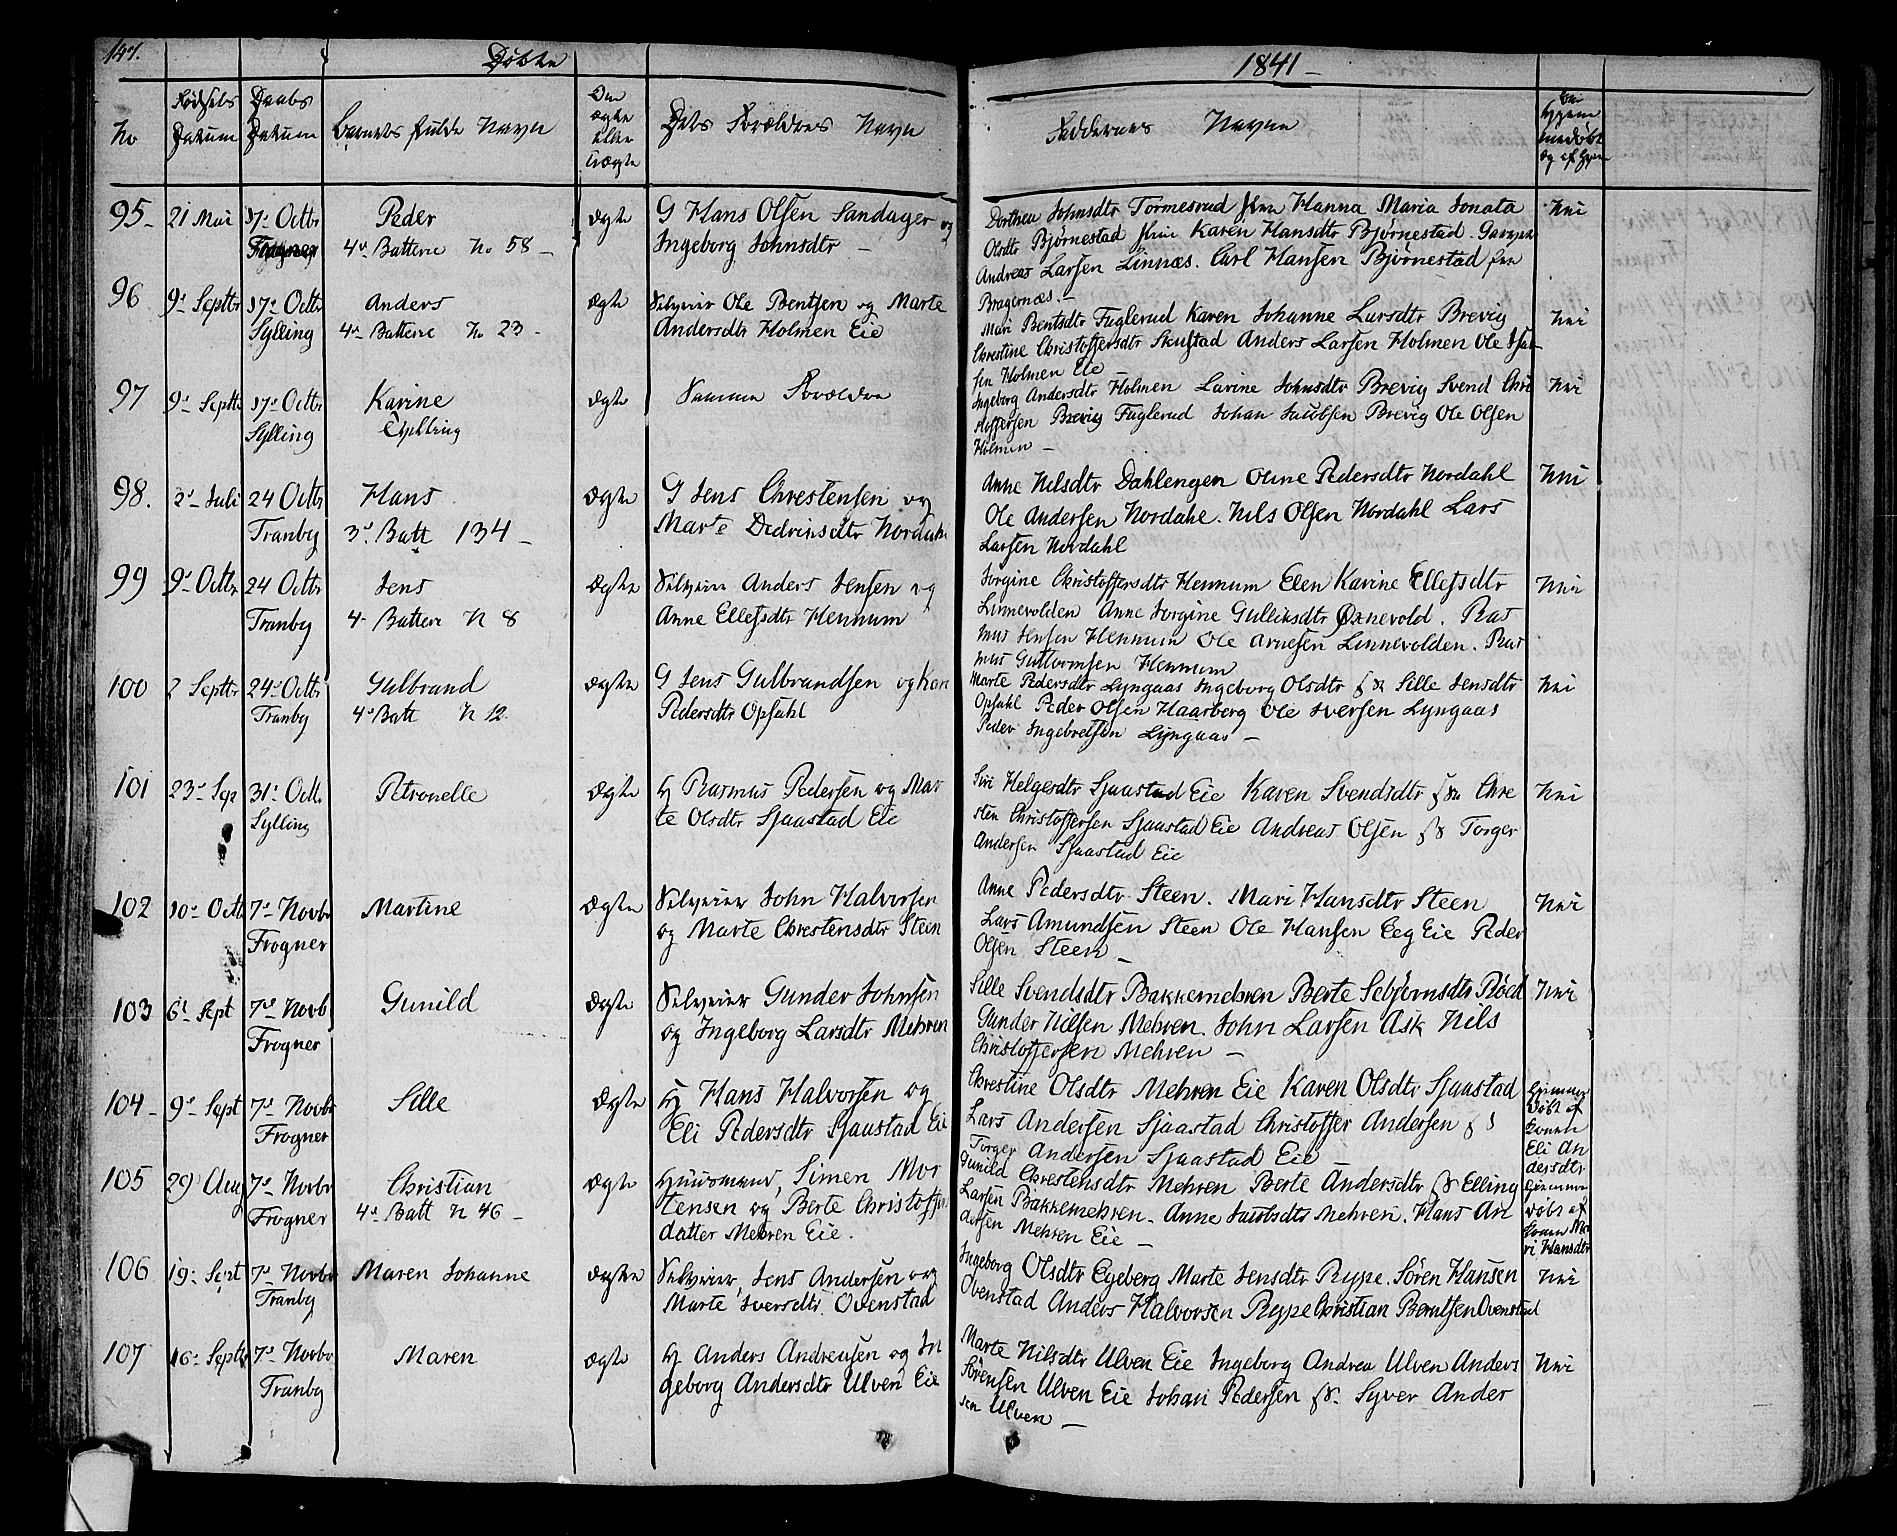 147.
Døbte
1841 –
No
Fødsels Datum
Daabs Datum
Barnets fulde Navn
Om ægte eller uægte
Dets Forældres Navn
Faddernes Navne
95. 21 Mai 17. Octbr Peder ægte G Hans Olsen Sandager og
4. Batterie No 58 – Ingeborg Johnsdtr –
Dorthea Johnsdtr Tormesrud Hanna Maria Jonata
Olsdtr Bjørnestad Karen Hansdtr Bjørnestad
Andreas Larsen Linnæs. Carl Hansen Bjørnestad fra
Bragernæs. –
Nei
96 9. Septbr 17. Octbr Anders ægte Selveier Ole Bentsen og Marte
Sylling 4. Batterie No 23 – Andersdtr Holmen Eie
Mari Bentsdtr Fuglerud Karen Johanne Larsdtr Brevig
Christine Christoffersdtr Skustad Anders Larsen Holmen Ole
sen Holmen Eie
Nei
97 9. Septbr 17. Octbr Karine ægte Samme Forældre
Sylling Tvilling
Ingeborg Andersdtr Holmen Lavine Johnsdtr Brevig Svend Chri
stoffersen Brevig Fuglerud Johan Jacobsen Brevig Ole Olsen
Holmen –
Nei
98. 2. Juli 24 Octbr Hans ægte G Jens Chrestensen og
Tranby 3. Batt 134 – Marte Didriksdtr Nordahl
Anne Nilsdtr Dahlengen Oline Pedersdtr Nordahl
Ole Andersen Nordahl. Nils Olsen Nordahl Lars
Larsen Nordahl
Nei
99 9. Octbr 24 Octbr Jens ægte Selveier Anders Jensen og
Tranby 4. Batterie N 8 Anne Ellefsdtr Hennum
Jorgine Christoffersdtr Hennum Elen Karine Ellefsdtr
Linnevolden Anne Jorgine Gulliksdtr Øxnevold. Ras
mus Jensen Hennum Ole Arnesen Linnevolden. Ras
mus Guttormsen Hennum
Nei
100 2 Septbr 24. Octbr Gulbrand ægte G Jens Gulbrandsen og Kari
Tranby 4. Batt N 12. Pedersdtr Opsahl
Marte Pedersdtr Lyngaas Ingeborg Olsdtr Sille Jensdtr
Opsahl Peder Olsen Haarberg Ole Iversen Lyngaas
Peder Ingebretsen Lyngaas –
Nei
101 23. Sep 31. Octbr Petronelle ægte H Rasmus Pedersen og Mar
Sylling te Olsdtr Sjaastad Eie
Siri Helgesdtr Sjaastad Eie Karen Svendsdtr Chre
sten Christoffersen Sjaastad Eie Andreas Olsen Torger
Andersen Sjaastad Eie
Nei
102 10. Octb 7. Novbr Martine ægte Selveier John Halvorsen
Frogner og Marte Chrestensdtr Steen
Anne Pedersdtr Steen. Mari Hansdtr Steen
Lars Amundsen Steen Ole Hansen Eeg Eie Peder
Olsen Steen –
Nei
103 6. Sept 7. Novb Gunild ægte Selveier Gunder Johnsen
Frogner og Ingeborg Larsdtr Mehren
Sille Svendsdtr Bakkemehren Berte Sebjørnsdtr Røed
Gunder Nilsen Mehren. John Larsen Ask Nils
Christoffersen Mehren –
Nei
104 – 9. Sept 7. Novbr Sille ægte H Hans Halvorsen og
Frogner Eli Pedersdtr Sjaastad Eie
Chrestine Olsdtr Mehren Eie Karen Olsdtr Sjaastad
Lars Andersen Sjaastad Christoffer Andersen
Torger Andersen Sjaastad Eie –
Hjemme
døbt af
Konen
Eli An
dersdtr
105 29 Aug 7. Novbr Christian ægte Huusmand, Simen Mor
Frogner 4. Batt N 46 – tensen og Berte Christoffer
datter Mehren Eie.
Gunild Chrestensdtr Mehren Berte Andersdtr Elling
Larsen Bakkemehren. Anne Jacobsdtr Mehren. Hans An
dersen Mehren Eie –
Hjemme
døbt af
Konen Ma
ri Hansdtr
106 19. Sept 7. Novbr Maren Johanne ægte Selveier, Jens Andersen og
Tranby Marte Iversdtr. Ovenstad
Ingeborg Olsdtr Egeberg Marte Jensdtr Rype. Søren Hansen
Ovenstad Anders Halvorsen Rype Christian Berntsen Ovenstad
Nei
107 16. Septbr 7. Novbr Maren ægte H Anders Andreasen og In
Tranby geborg Andersdtr Ulven Eie
Marte Nilsdtr Ulven Eie Ingeborg Andrea Ulven Anders
Sørensen Ulven Eie Johan Pedersen Syver Ander
sen Ulven –
Nei